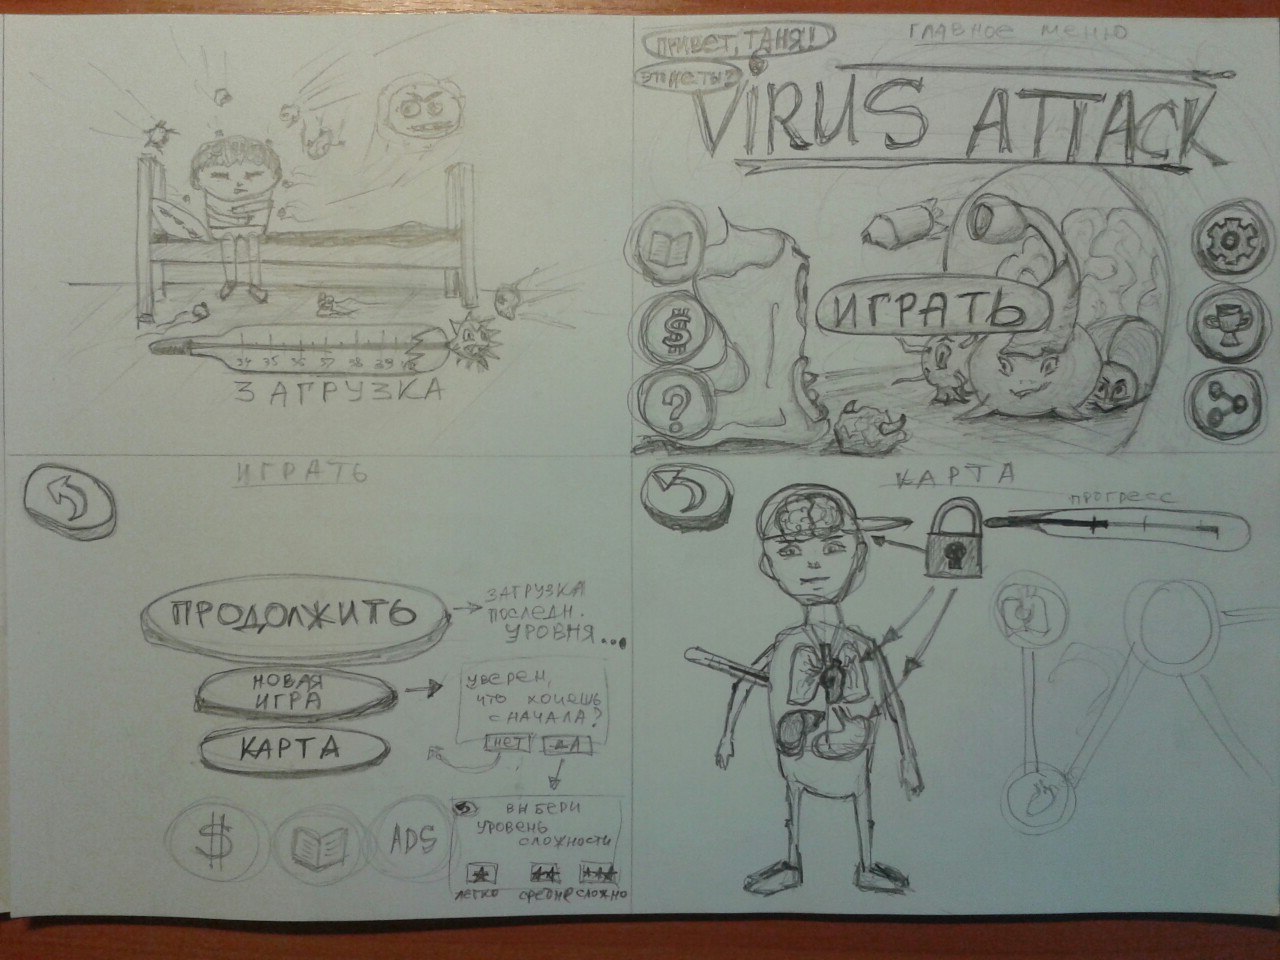 34 35 36 37 38 39
ЗАГРУЗКА
ПРИВЕТ, ТАНЯ!
ЭТО НЕ ТЫ?
ГЛАВНОЕ МЕНЮ
VIRUS ATTACK
$
ИГРАТЬ
?
ИГРАТЬ
ПРОДОЛЖИТЬ
ЗАГРУЗКА
ПОСЛЕДН.
УРОВНЯ...
НОВАЯ
ИГРА
УВЕРЕН,
ЧТО ХОЧЕШЬ
СНАЧАЛА?
НЕТ ДА
КАРТА
$
ADS
ВЫБЕРИ
УРОВЕНЬ
СЛОЖНОСТИ
ЛЕГКО СРЕДНЕ СЛОЖНО
КАРТА
ПРОГРЕСС